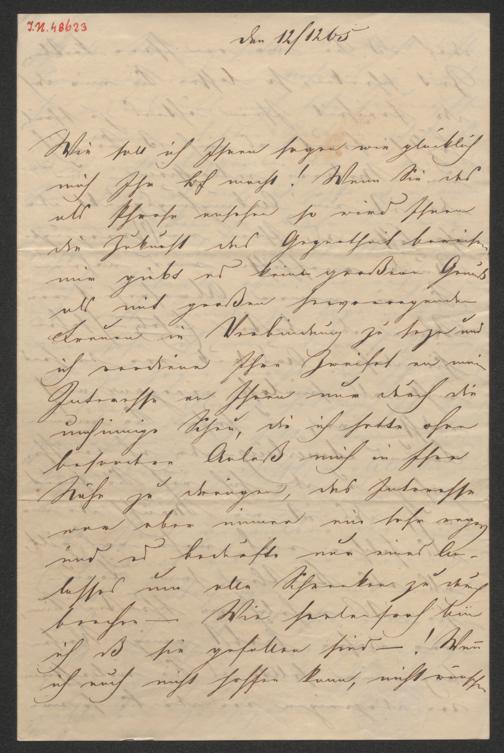 I.N. 48623
den 12/12 65
Wie soll ich Ihnen sagen wie glücklich
mich Ihr Bf macht! Wenn Sie das
als Phrase ansehen so wird Ihnen
die Zukunft das Gegentheil beweisen,
mir giebt es keinen größeren Genuß
als mit großen hervorragenden
Frauen in Verbindung zu sein und
ich verdiene Ihre Zweifel an mein
Interesse an Ihnen nur durch die
unsinnige Scheu, die ich hatte ohne
besonderen Anlaß mich in Ihre
Nähe zu drängen, das Interesse
war aber immer ein sehr reges
und es bedurfte nur eines An-
lasses um alle Schranken zu durch
brechen — Wie seelenfroh bin
ich daß sie gefallen sind — ! Wenn
ich auch nicht hoffen kann, nicht wünschen